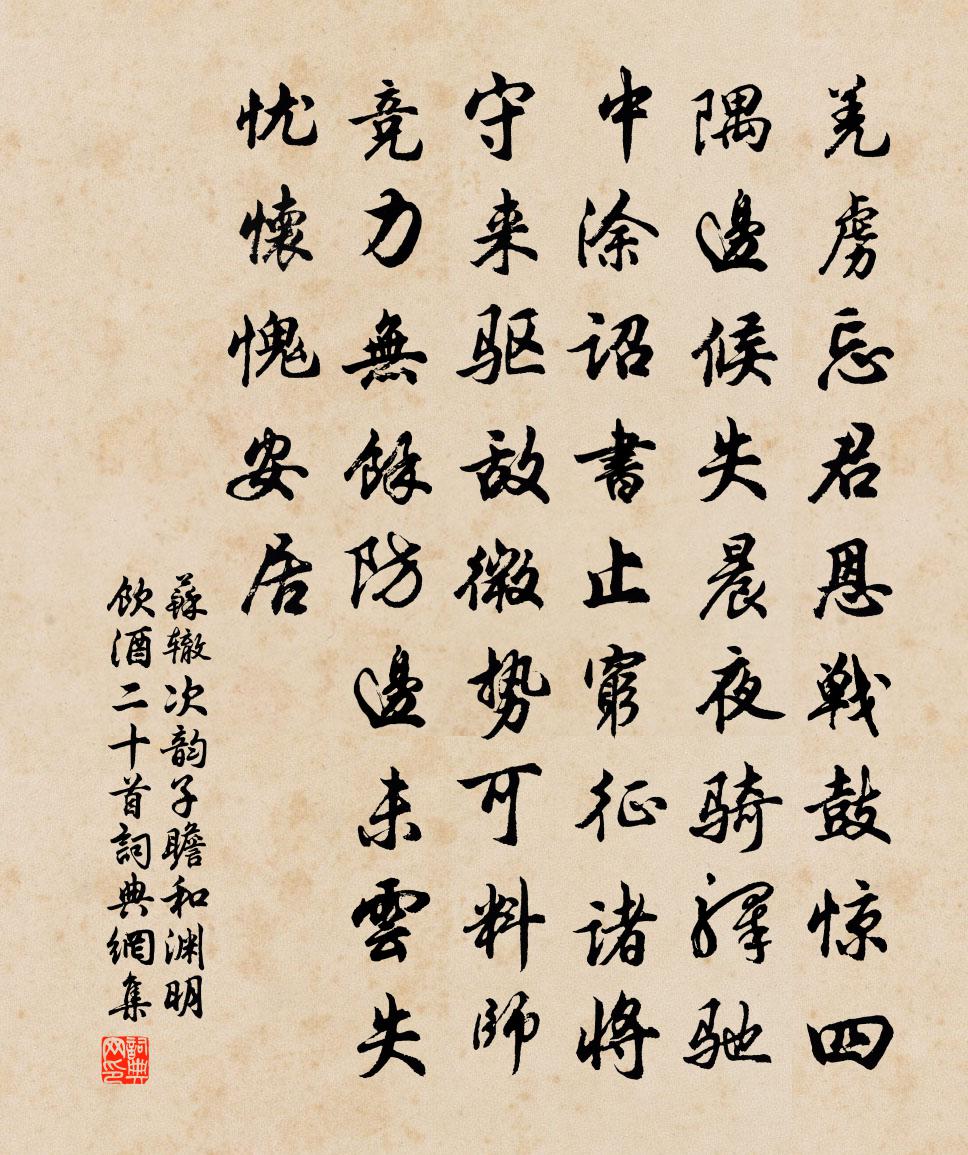 羌虏忘君恩戦鼓惊四
隅邊候失晨夜骑驛驰
中涂詔書止窮征諸将
守来驱敌微势可料師
竞力無餘防邊未雲失
忧懷愧安居
蘇辙次韵子瞻和渊明
飲酒二十首詞典網集
詞典网印